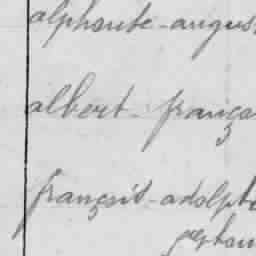 alphonse-augus
albert-frança
françois-adolph